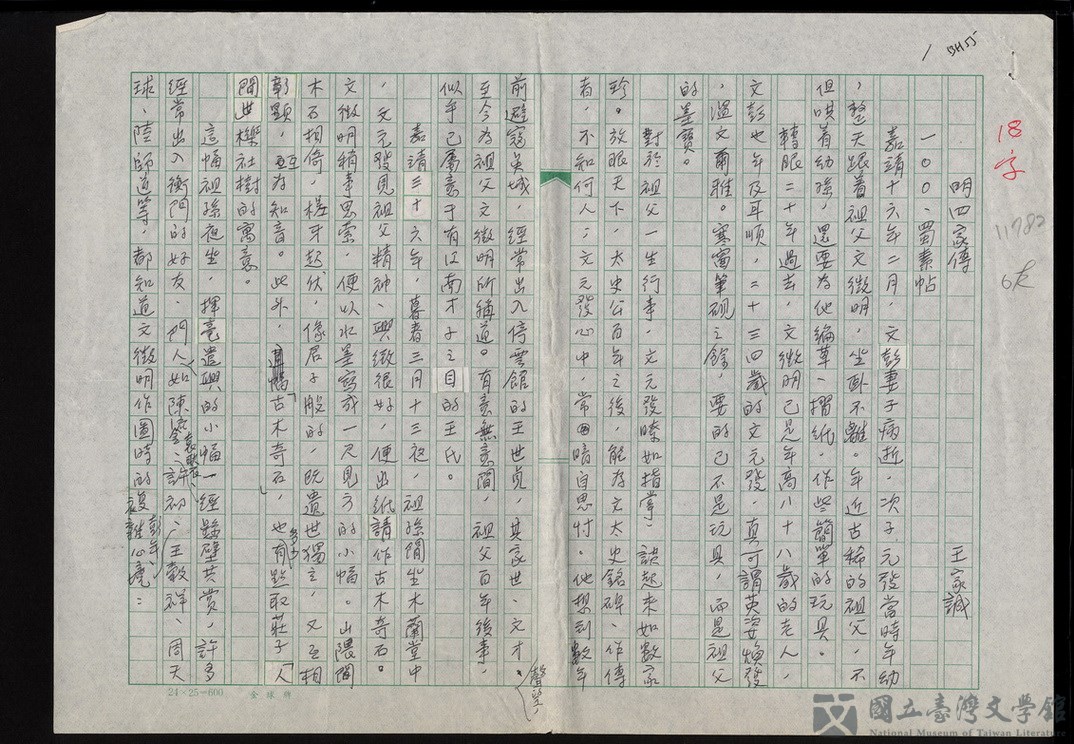 1 8H55
18字
11782
明四家傳 王家誠
一〇〇、蜀素帖
嘉靖十六年二月，文彭妻子病逝，次子元發當時年幼
，整天跟着祖父文徵明，坐臥不離。年近古稀的祖父，不
但哄着幼孫，還要為他編草、摺紙，作些簡單的玩具。
轉眼二十年過去，文徵明已是年高八十八歲的老人，
文彭也年及耳順，二十三四歲的文元發，真可謂英姿煥發
，溫文爾雅。寒窗筆硯之餘，要的已不是玩具，而是祖父
的墨寶。
對於祖父一生行事，文元發瞭如指掌，談起來如數家
珍。放眼天下，太史公百年之後，能為文太史銘碑、作傳
者，不知何人；文元發心中，常暗自思忖。他想到數年
前避寇吳城，經常出入停雲館的王世貞，其家世、文才、聲望，
至今為祖父文徵明所稱道。有意無意間，祖父百年後事，
似乎已屬意于有江南才子之目的王氏。
嘉靖三十六年，暮春三月十三夜，祖孫閒坐木蘭堂中
，文元發見祖父精神、興緻很好，便出紙請作古木奇石。
文徵明稍事思索，便以水墨寫成一尺見方的小幅。山隈間
木石相倚，槎牙起伏，像君子般的，既遺世獨立，又互相
彰顯，互為知音。此外，古木奇石，也多少有點取莊子人
間世櫟社樹的寓意。
這幅祖孫夜坐，揮毫遣興的小幅一經懸壁共賞，許多
經常出入衡門的好友、門人，如陳淳、袁褧、許初、王穀祥、周天
球、陸師道等，都知道文徵明作圖時的複雜心境：
24×25=600 金球牌
國立臺灣文學館
National Museum of Taiwan Literature